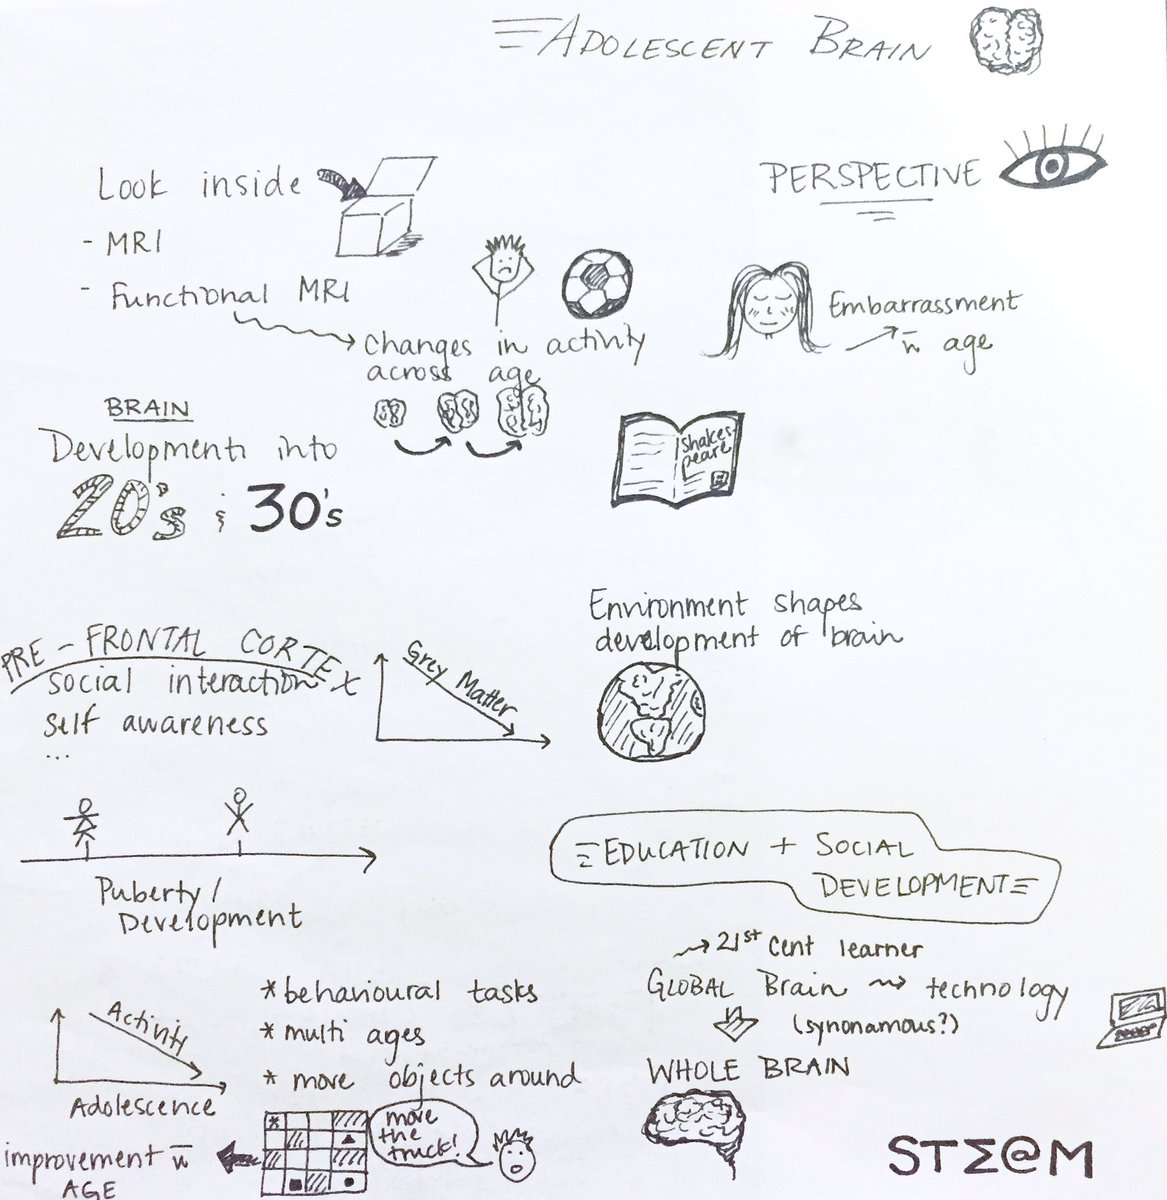 ADOLESCENT BRAIN
Look inside
- MRI
- Functional MRI
Changes in activity
across age
BRAIN
Development into
20's & 30's
PRE-FRONTAL CORTEX
social interaction
self awareness
...
Grey Matter
Puberty/
Development
Activity
Adolescence
* behavioural tasks
* multi ages
* move objects around
*
move
the
truck!
improvement w̄
AGE
PERSPECTIVE
Embarrassment
w̄ age
Shakes-
peare
Environment shapes
development of brain
EDUCATION + SOCIAL
DEVELOPMENT
→ 21st cent learner
GLOBAL Brain → technology
(synonamous?)
WHOLE BRAIN
STΣ@M